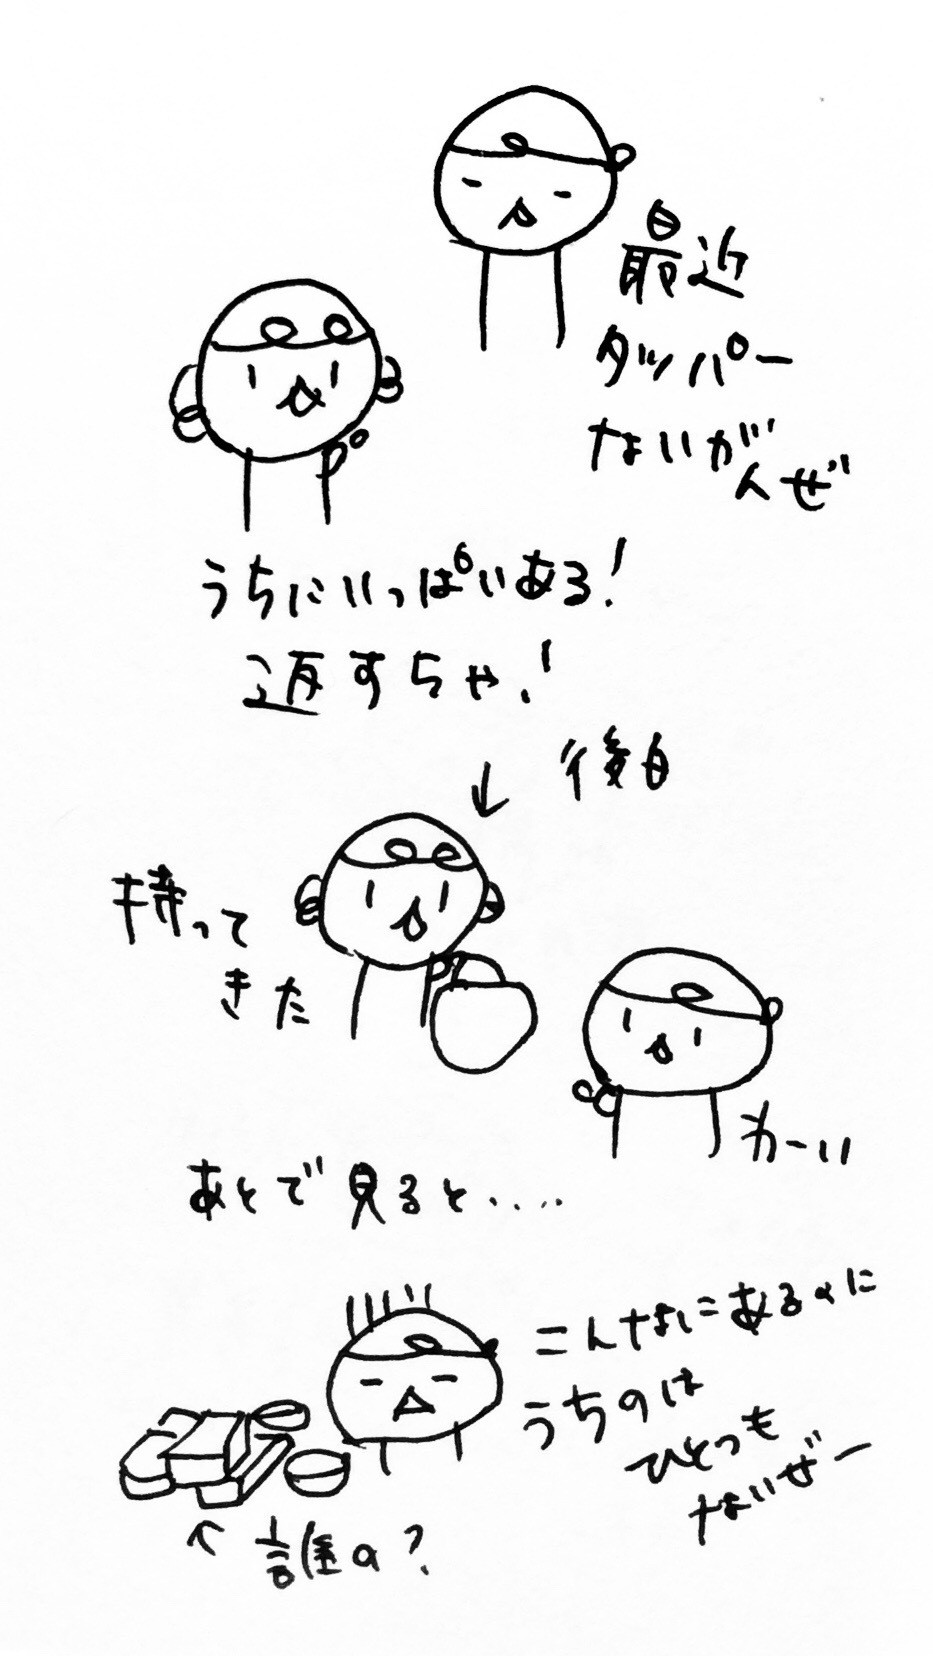 最近
タッパー
ないが
んぜ
うちにいっぱいある!
返すちゃ!
後日
↓
持って
きた
わーい
あとで見ると‥‥
こんなにあるのに
うちのは
ひとつも
ないぜー
↑誰の?